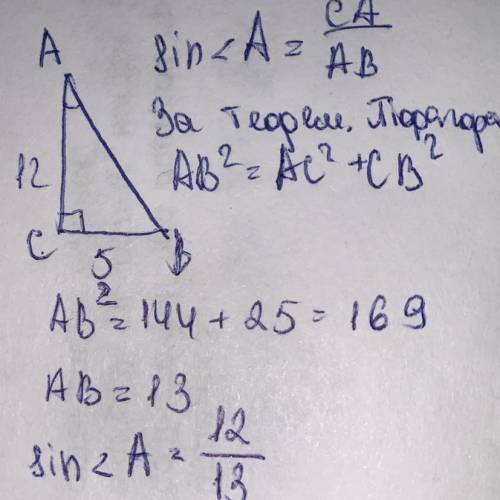 A
sin < A = CA / AB
За теорем. Піфагора
AB² = AC² + CB²
12
C
5
B
AB² = 144 + 25 = 169
AB = 13
sin < A = 12 / 13